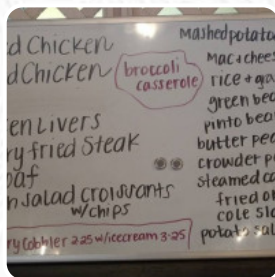 d Chicken
d Chicken
broccoli
casserole
en Livers
ry fried Steak
oaf
n Salad croissants
w/chips
ry Cobbler 2.25 w/icecream 3.25
Mashed potato
Mac + chees
rice + gra
green bea
pinto bea
butter pea
crowder p
steamed ca
fried o
cole sl
potato sal